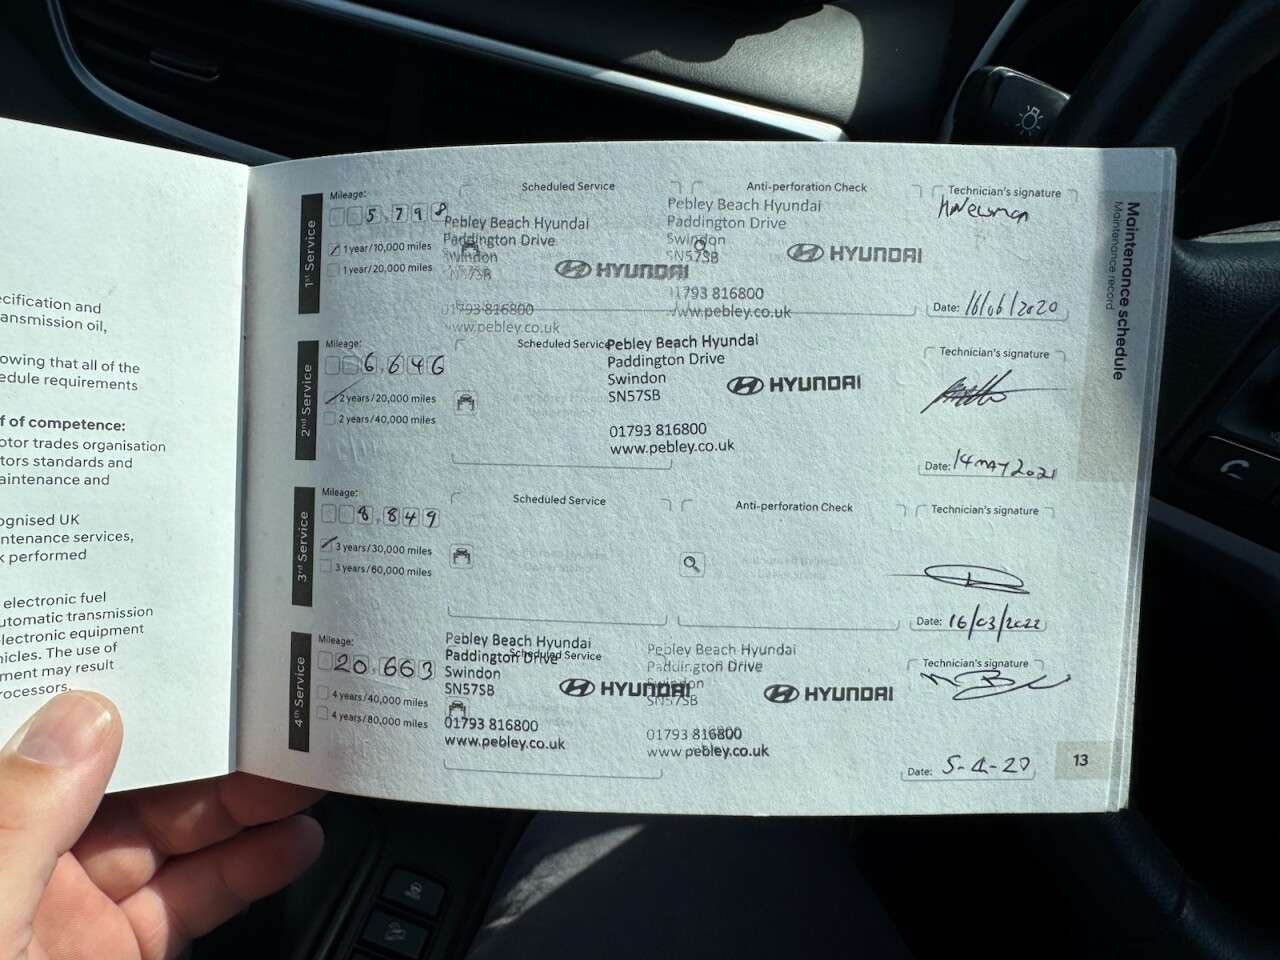 ecification and
ansmission oil,
owing that all of the
edule requirements
f of competence:
otor trades organisation
tors standards and
aintenance and
ognised UK
ntenance services,
k performed
electronic fuel
utomatic transmission
electronic equipment
hicles. The use of
ment may result
rocessors.
Maintenance schedule
Maintenance record
1st Service
Mileage:
5,798
1 year/10,000 miles
1 year/20,000 miles
Scheduled Service
Pebley Beach Hyundai
Paddington Drive
Swindon
SN57SB
HYUNDAI
01793 816800
www.pebley.co.uk
Anti-perforation Check
Pebley Beach Hyundai
Paddington Drive
Swindon
SN57SB
HYUNDAI
01793 816800
www.pebley.co.uk
Technician's signature
Newman
Date: 16/06/2020
2nd Service
Mileage:
6,646
2 years/20,000 miles
2 years/40,000 miles
Scheduled Service
Pebley Beach Hyundai
Paddington Drive
Swindon
SN57SB
HYUNDAI
01793 816800
www.pebley.co.uk
Technician's signature
Date: 14 MAY 2021
3rd Service
Mileage:
8,849
3 years/30,000 miles
3 years/60,000 miles
Scheduled Service
Anti-perforation Check
Technician's signature
Date: 16/03/2022
4th Service
Mileage:
20,663
4 years/40,000 miles
4 years/80,000 miles
Scheduled Service
Pebley Beach Hyundai
Paddington Drive
Swindon
SN57SB
HYUNDAI
01793 816800
www.pebley.co.uk
Pebley Beach Hyundai
Paddington Drive
Swindon
SN57SB
HYUNDAI
01793 816800
www.pebley.co.uk
Technician's signature
Date:
13